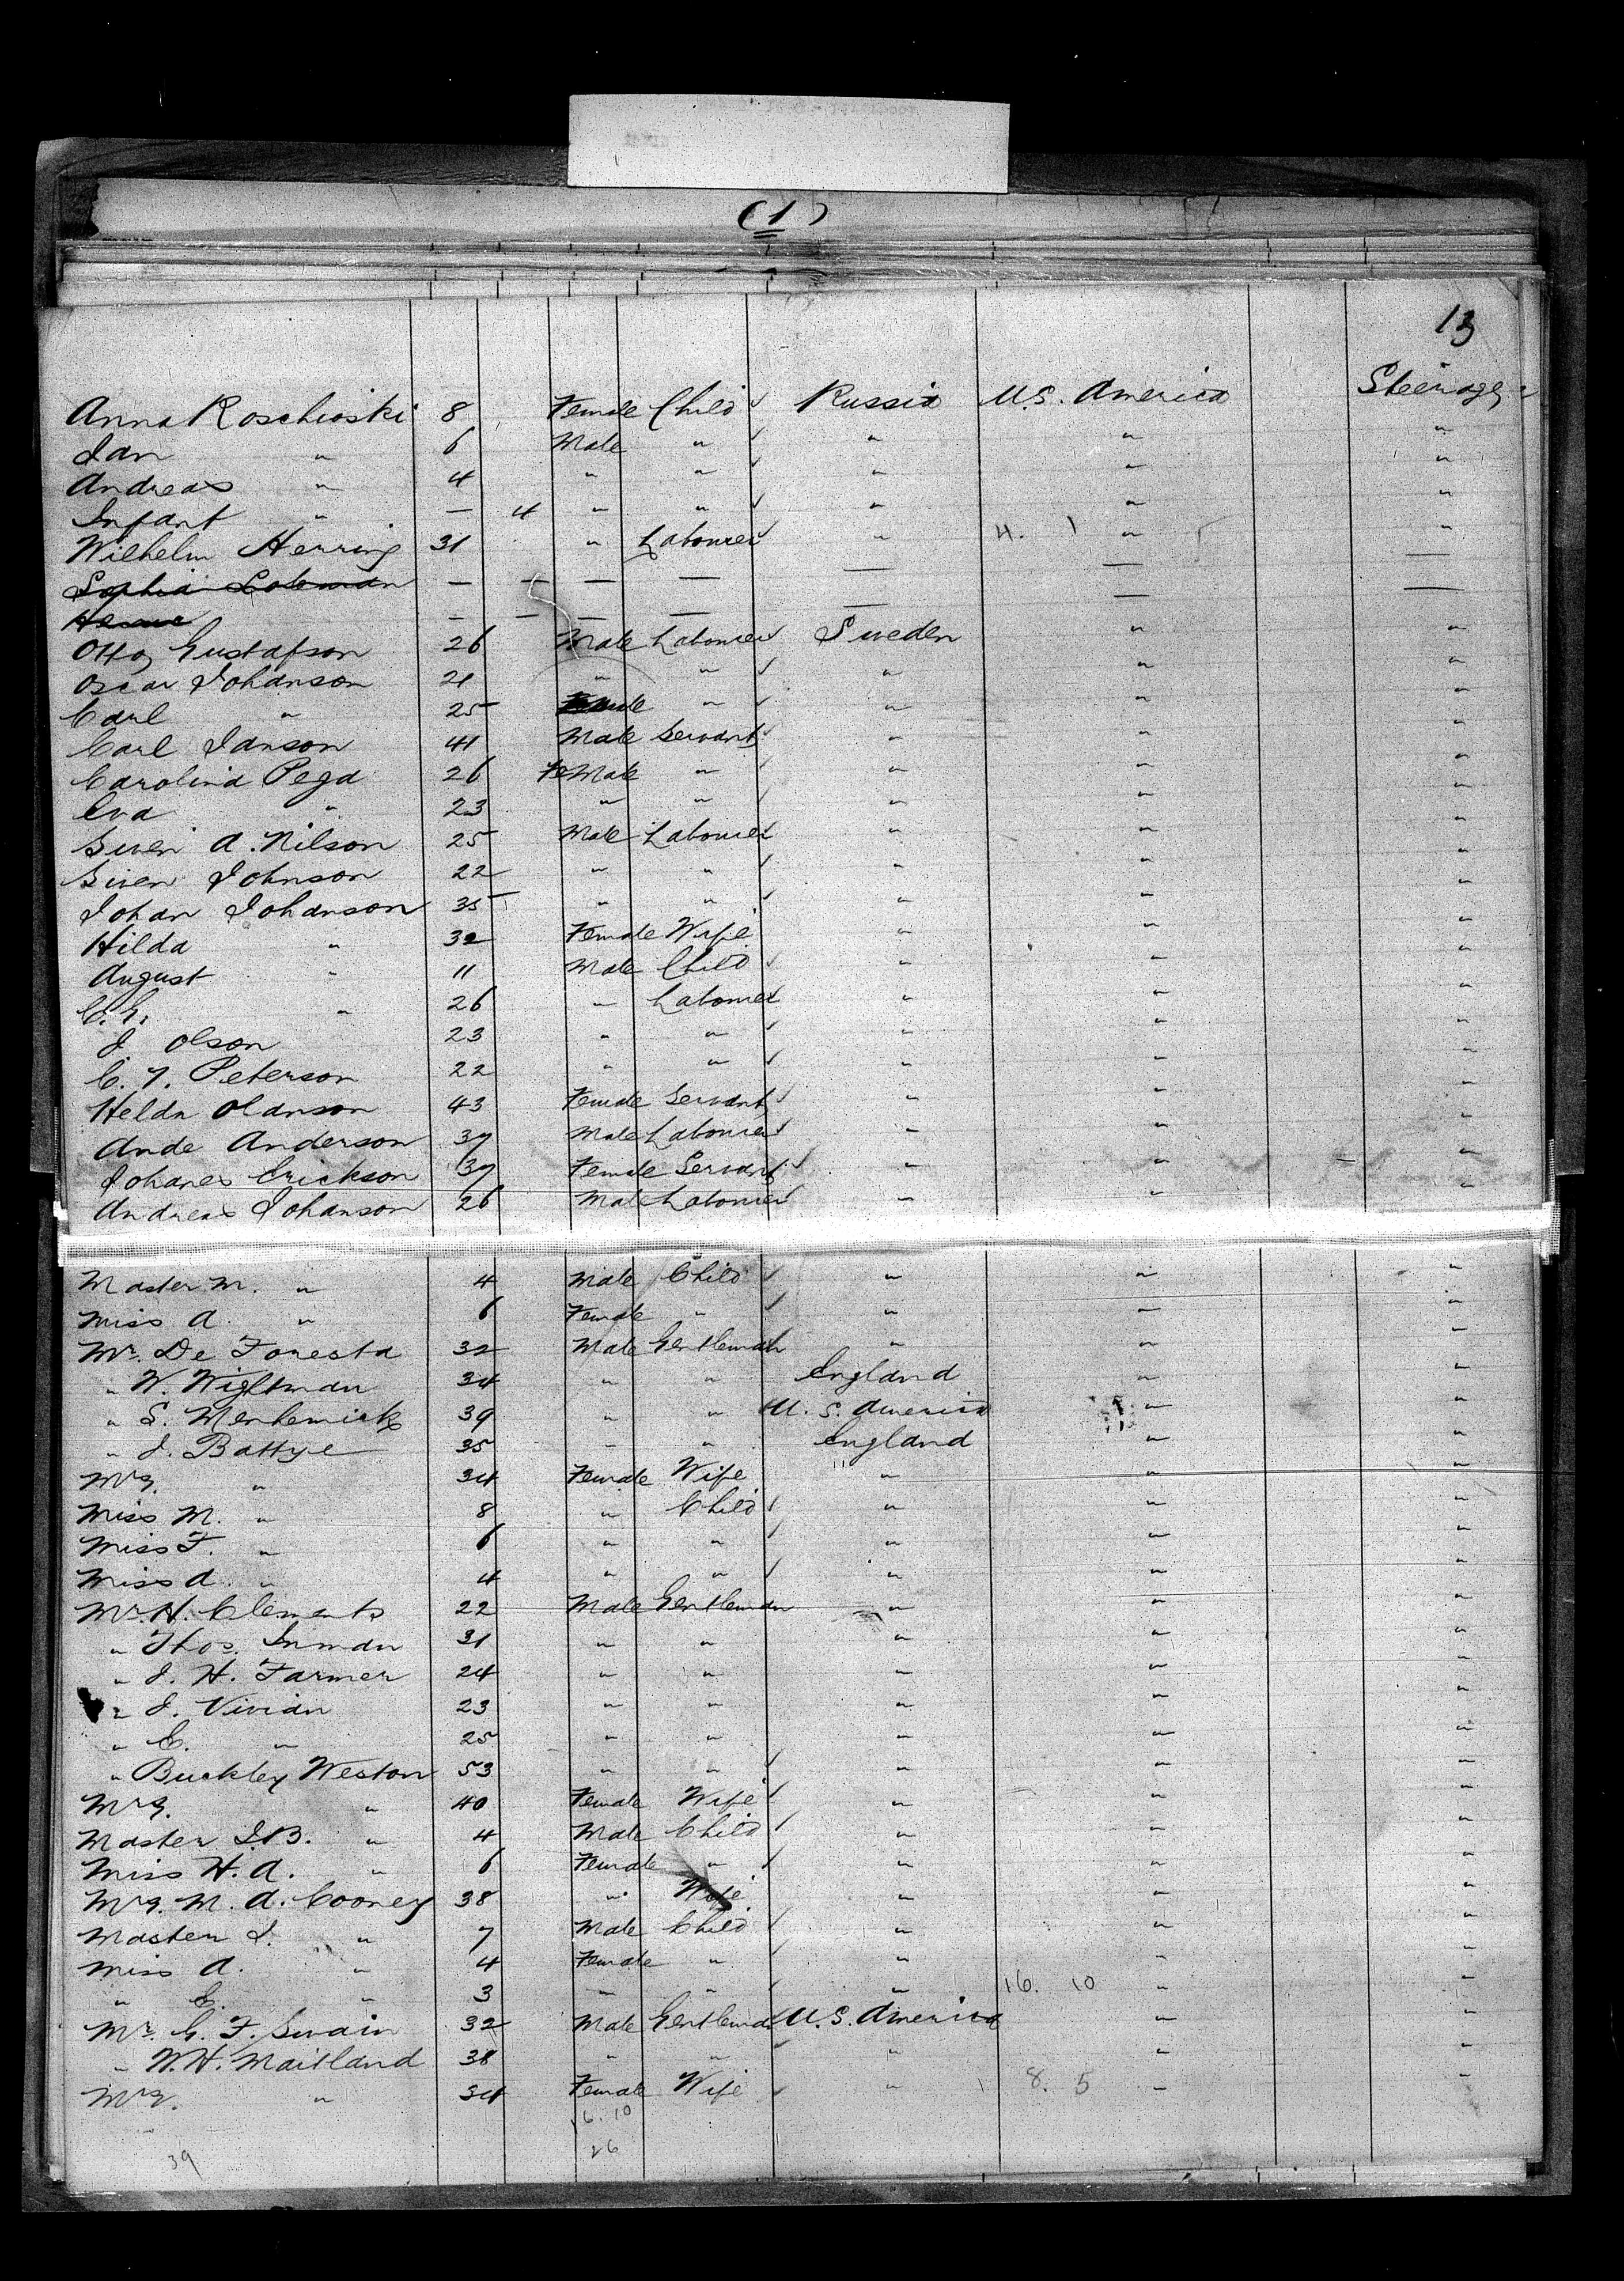 (1)
13
Anna Roschioski 8 Female Child Russia U.S. America Steerage
Jan " 6 Male " " " "
Andreas " 4 " " " " "
Infant " — 4 " " " " "
Wilhelm Herring 31 " Labourer " 4. 1 " "
Sophia Coleman — — — — — — —
— — — — — — —
Otto Gustafson 26 Male Labourer Sweden " "
Oscar Johanson 21 " " " " "
Carl " 25 " " " "
Carl Janson 41 Male Servant " " "
Carolina Pega 26 FeMale " " " "
Eva " 23 " " " " "
Swen A. Nilson 25 Male Labourer " " "
Swen Johnson 22 " " " " "
Johan Johanson 35 " " " " "
Hilda " 32 Female Wife " " "
August " 11 Male Child " " "
C. G. " 26 " Labourer " " "
J Olson 23 " " " " "
C. J. Peterson 22 " " " " "
Helda Olanson 43 Female Servant " " "
Ande Anderson 37 Male Labourer " " "
Johanes Erickson 37 Female Servant " " "
Andreas Johanson 26 Male Labourer " " "
Master M. " 4 Male Child " " "
Miss A. " 6 Female " " " "
Mr. De Foresta 32 Male Gentleman " " "
" W. Wightman 34 " " England " "
" S. 39 " " U. S. America " "
" J. Battye 35 " " England " "
Mrs. " 34 Female Wife " " "
Miss M. " 8 " Child " " "
Miss F. " 6 " " " " "
Miss A. " 4 " " " " "
Mr. H. Clements 22 Male Gentleman " " "
" Thos. Inman 31 " " " " "
" J. H. Farmer 24 " " " " "
" J. Vivian 23 " " " " "
" C. " 25 " " " " "
" Buckley Weston 53 " " " " "
Mrs. " 40 Female Wife " " "
Master J.B. " 4 Male Child " " "
Miss H. A. " 6 Female " " " "
Mrs. M. A. Cooney 38 " Wife " " "
Master J. " 7 Male Child " " "
Miss A. " 4 Female " " " "
" C. " 3 " " " 16. 10 " "
Mr. G. F. Swain 32 Male Gentleman U. S. America " "
" W. H. Maitland 38 " " " " "
Mrs. " 34 Female Wife " 8. 5 " "
16. 10
26
39